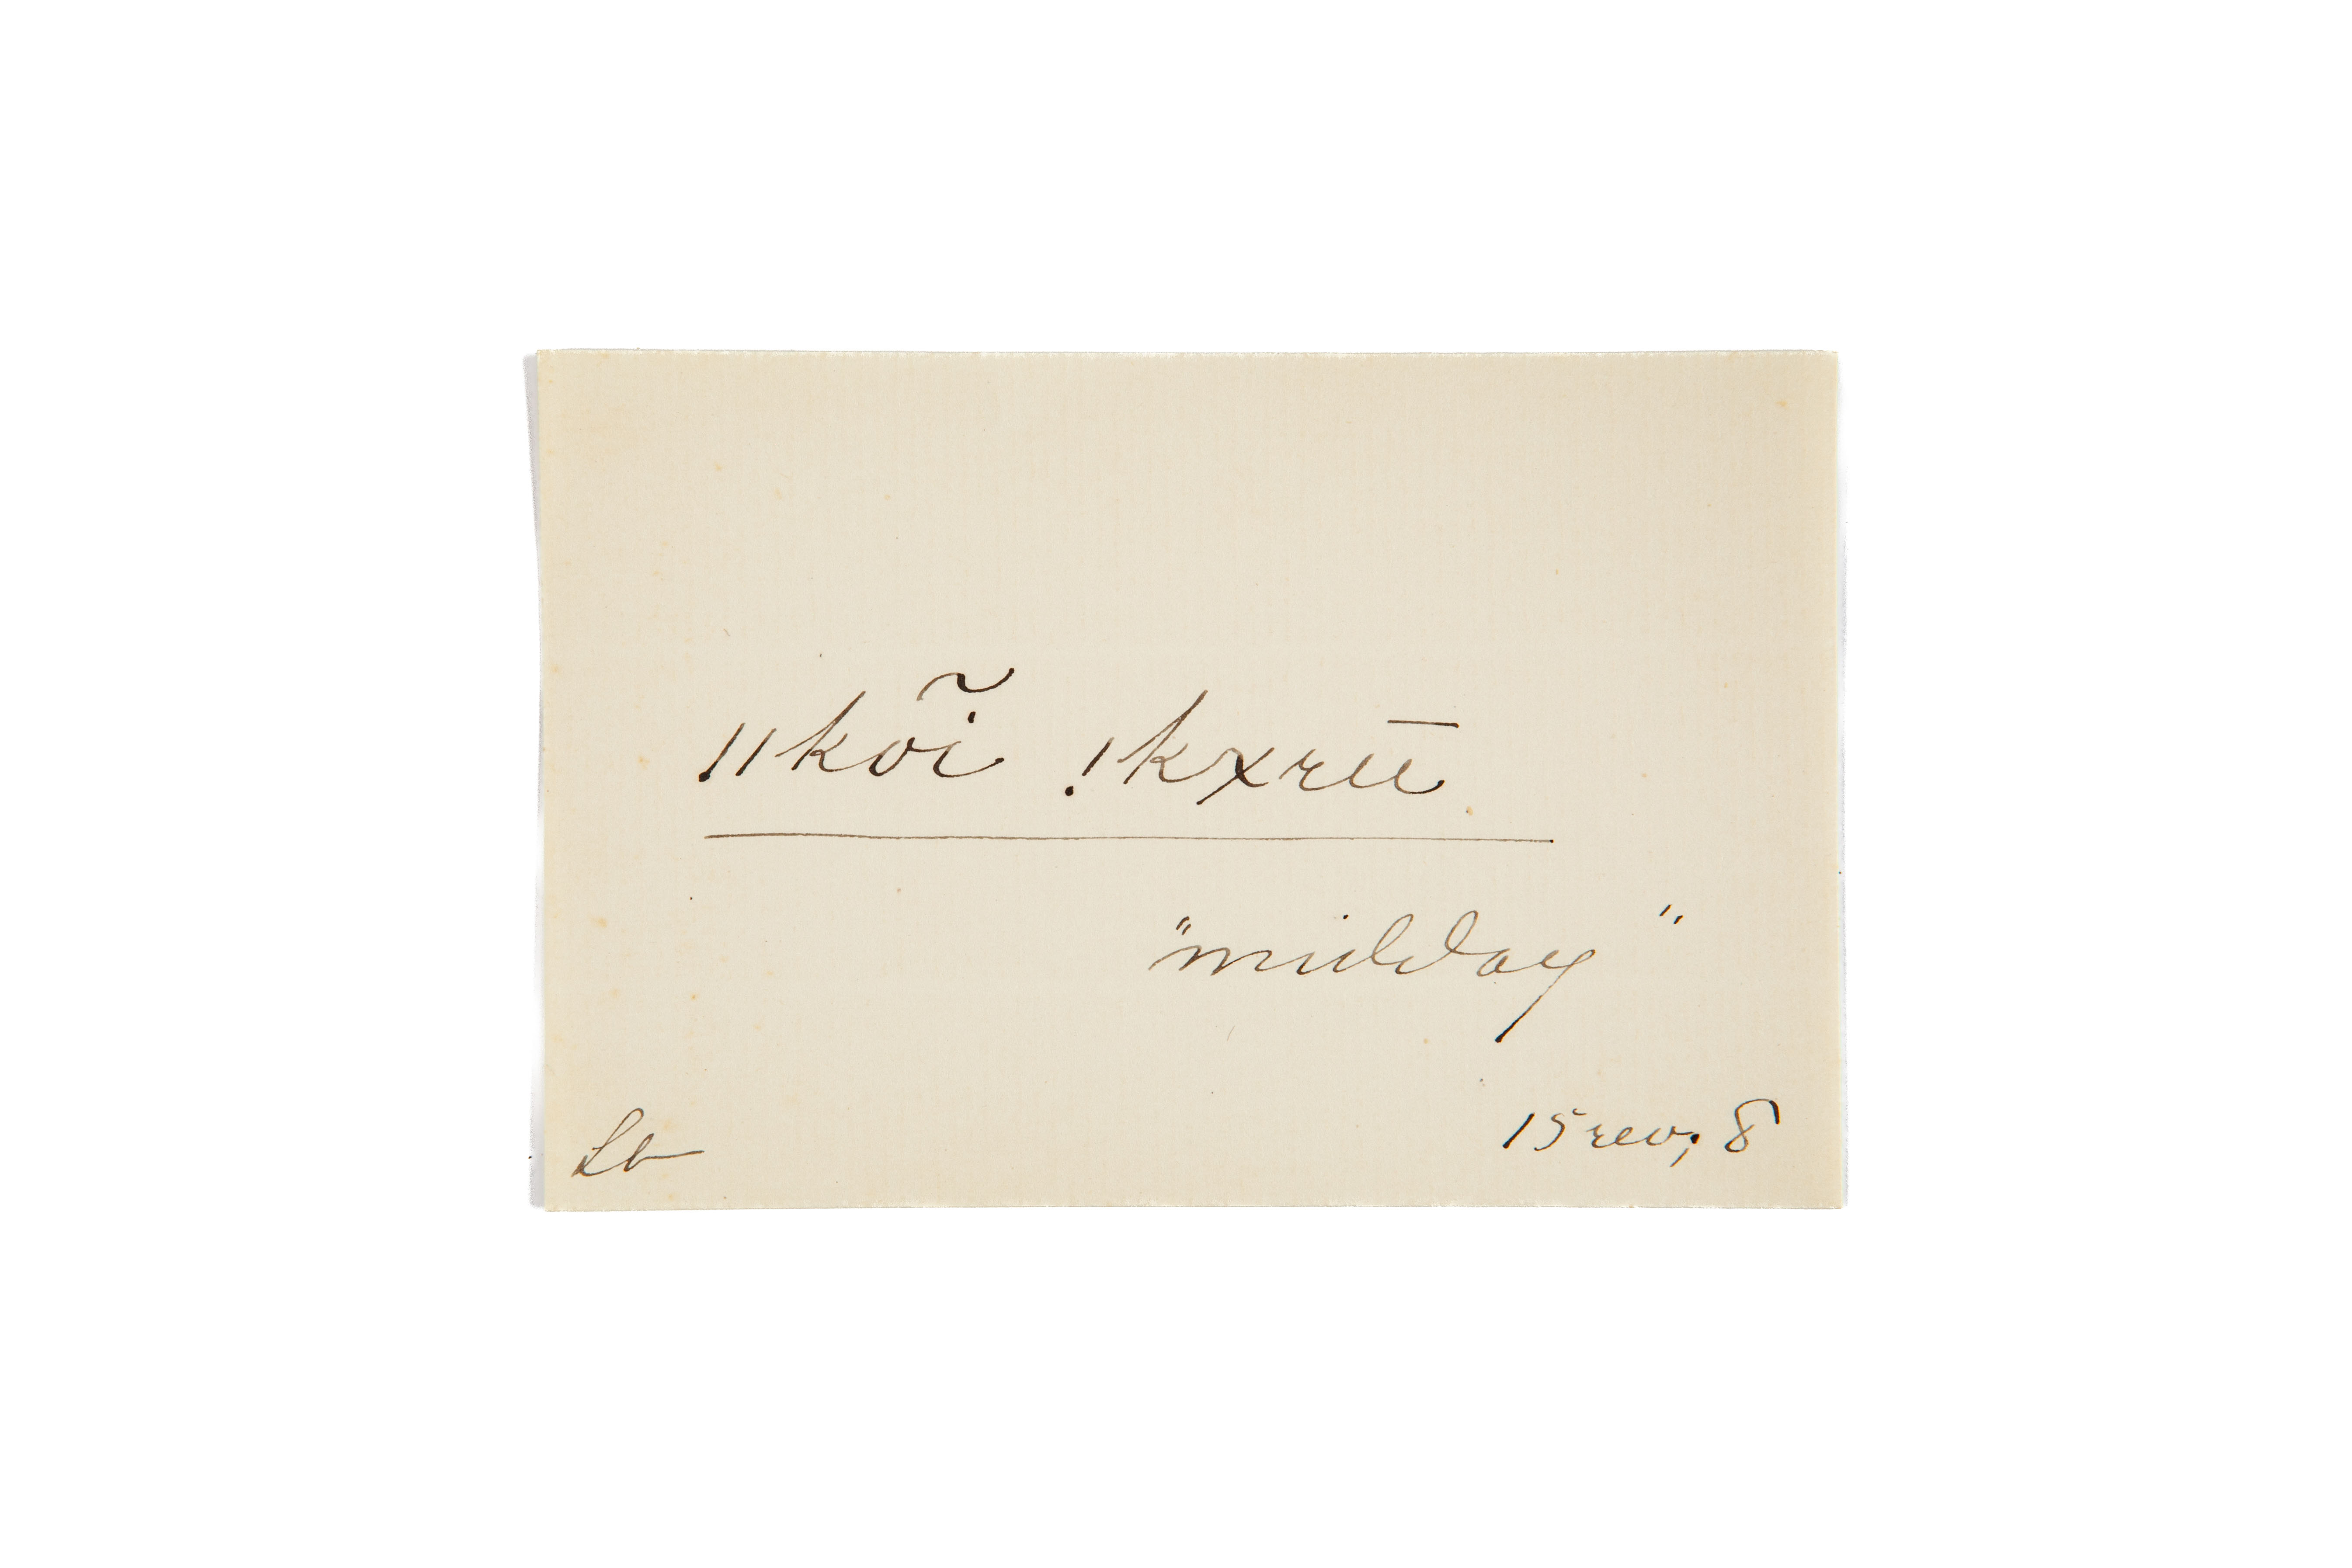 ǁkõĩ ǃkxrū
"midday"
Lb
15 rev, 8